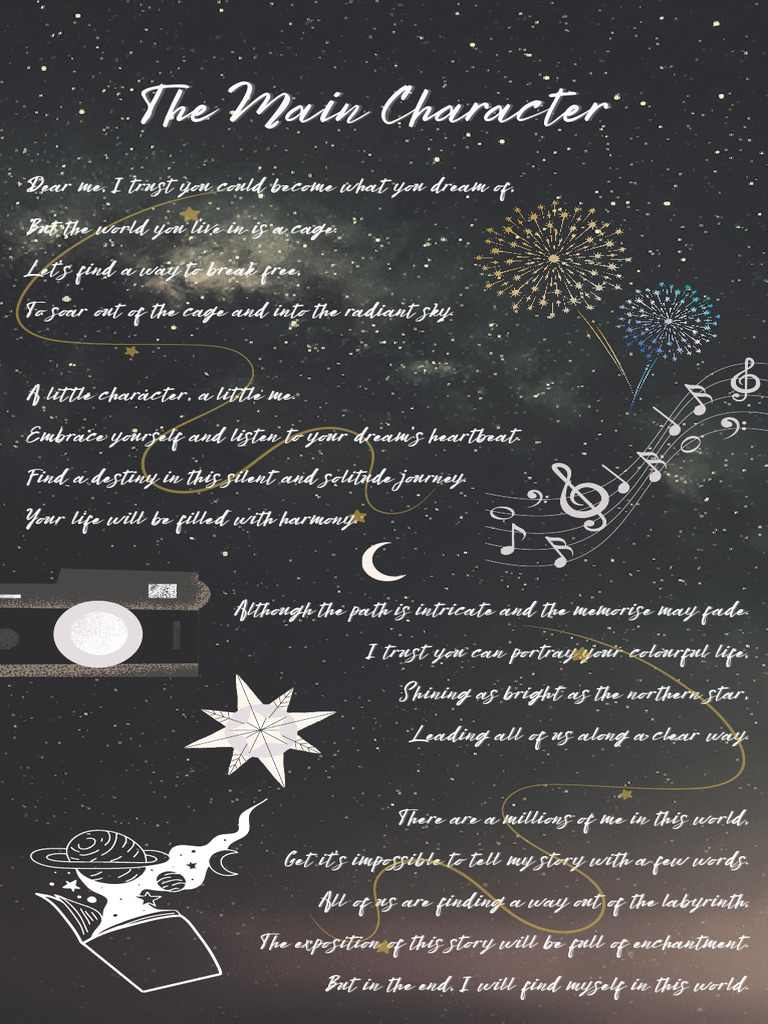 The Main Character
Dear me, I trust you could become what you dream of,
But the world you live in is a cage.
Let's find a way to break free,
To soar out of the cage and into the radiant sky.
A little character, a little me.
Embrace yourself and listen to your dream's heartbeat.
Find a destiny in this silent and solitude journey.
Your life will be filled with harmony.
Although the path is intricate and the memorise may fade.
I trust you can portray your colourful life,
Shining as bright as the northern star,
Leading all of us along a clear way.
There are a millions of me in this world,
Get it's impossible to tell my story with a few words.
All of us are finding a way out of the labyrinth,
The exposition of this story will be full of enchantment.
But in the end, I will find myself in this world.